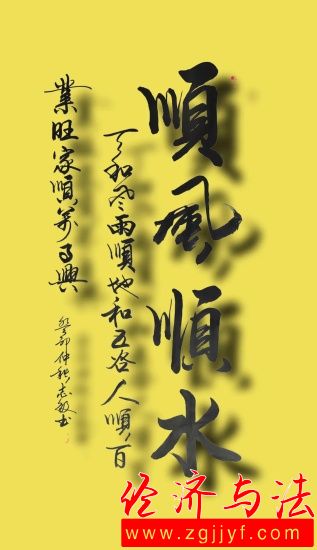 順風順水
天和风雨順地和五谷人順百
業旺家順万事興
癸卯仲秋志敏书
经济与法
www.zgjjyf.com